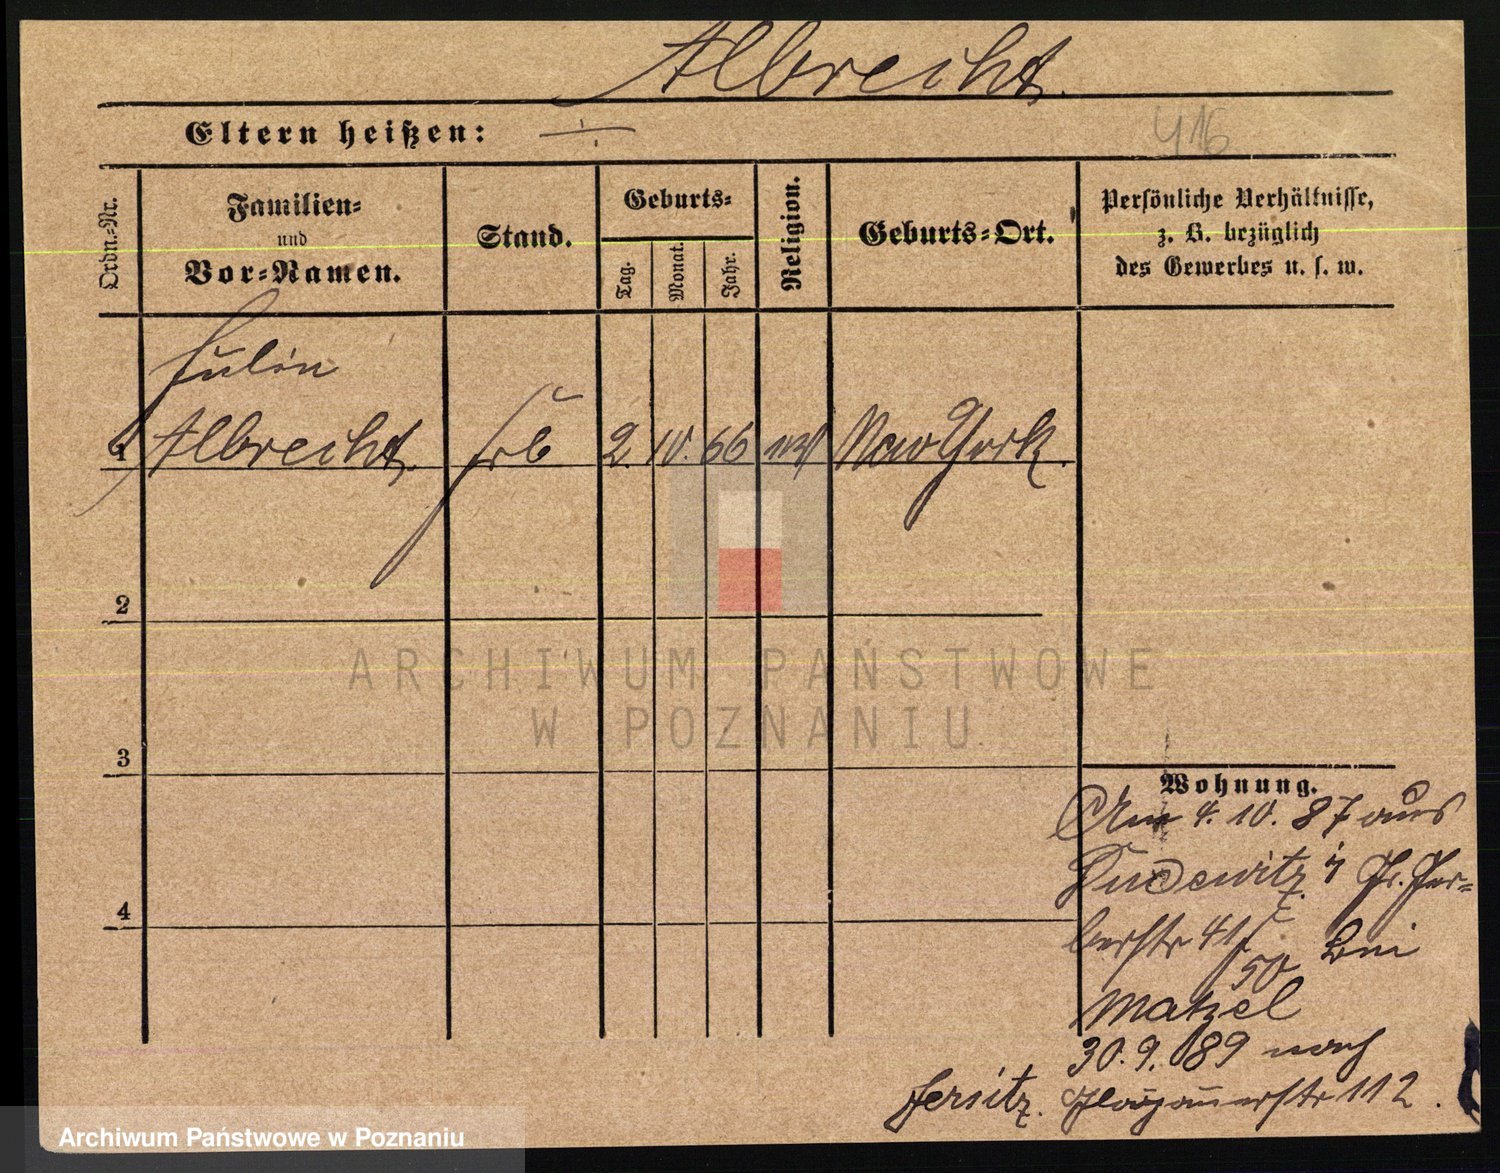 Albrecht.
Eltern heißen: ÷
416
Ordn.-Nr.
Familien-
und
Vor-Namen.
Stand.
Geburts-
Tag.
Monat.
Jahr.
Religion.
Geburts-Ort.
Persönliche Verhältnisse,
z. B. bezüglich
des Gewerbes u. s. w.
1
Albrecht.
2. 10. 66
New York.
2
3
4
ARCHIWUM PAŃSTWOWE
W POZNANIU
Wohnung.
Am 4. 10. 87 aus
Pudewitz
berstr 41/50 bei
Matzel
30. 9. 89 nach
Jersitz. Glogauerstr 112.
Archiwum Państwowe w Poznaniu